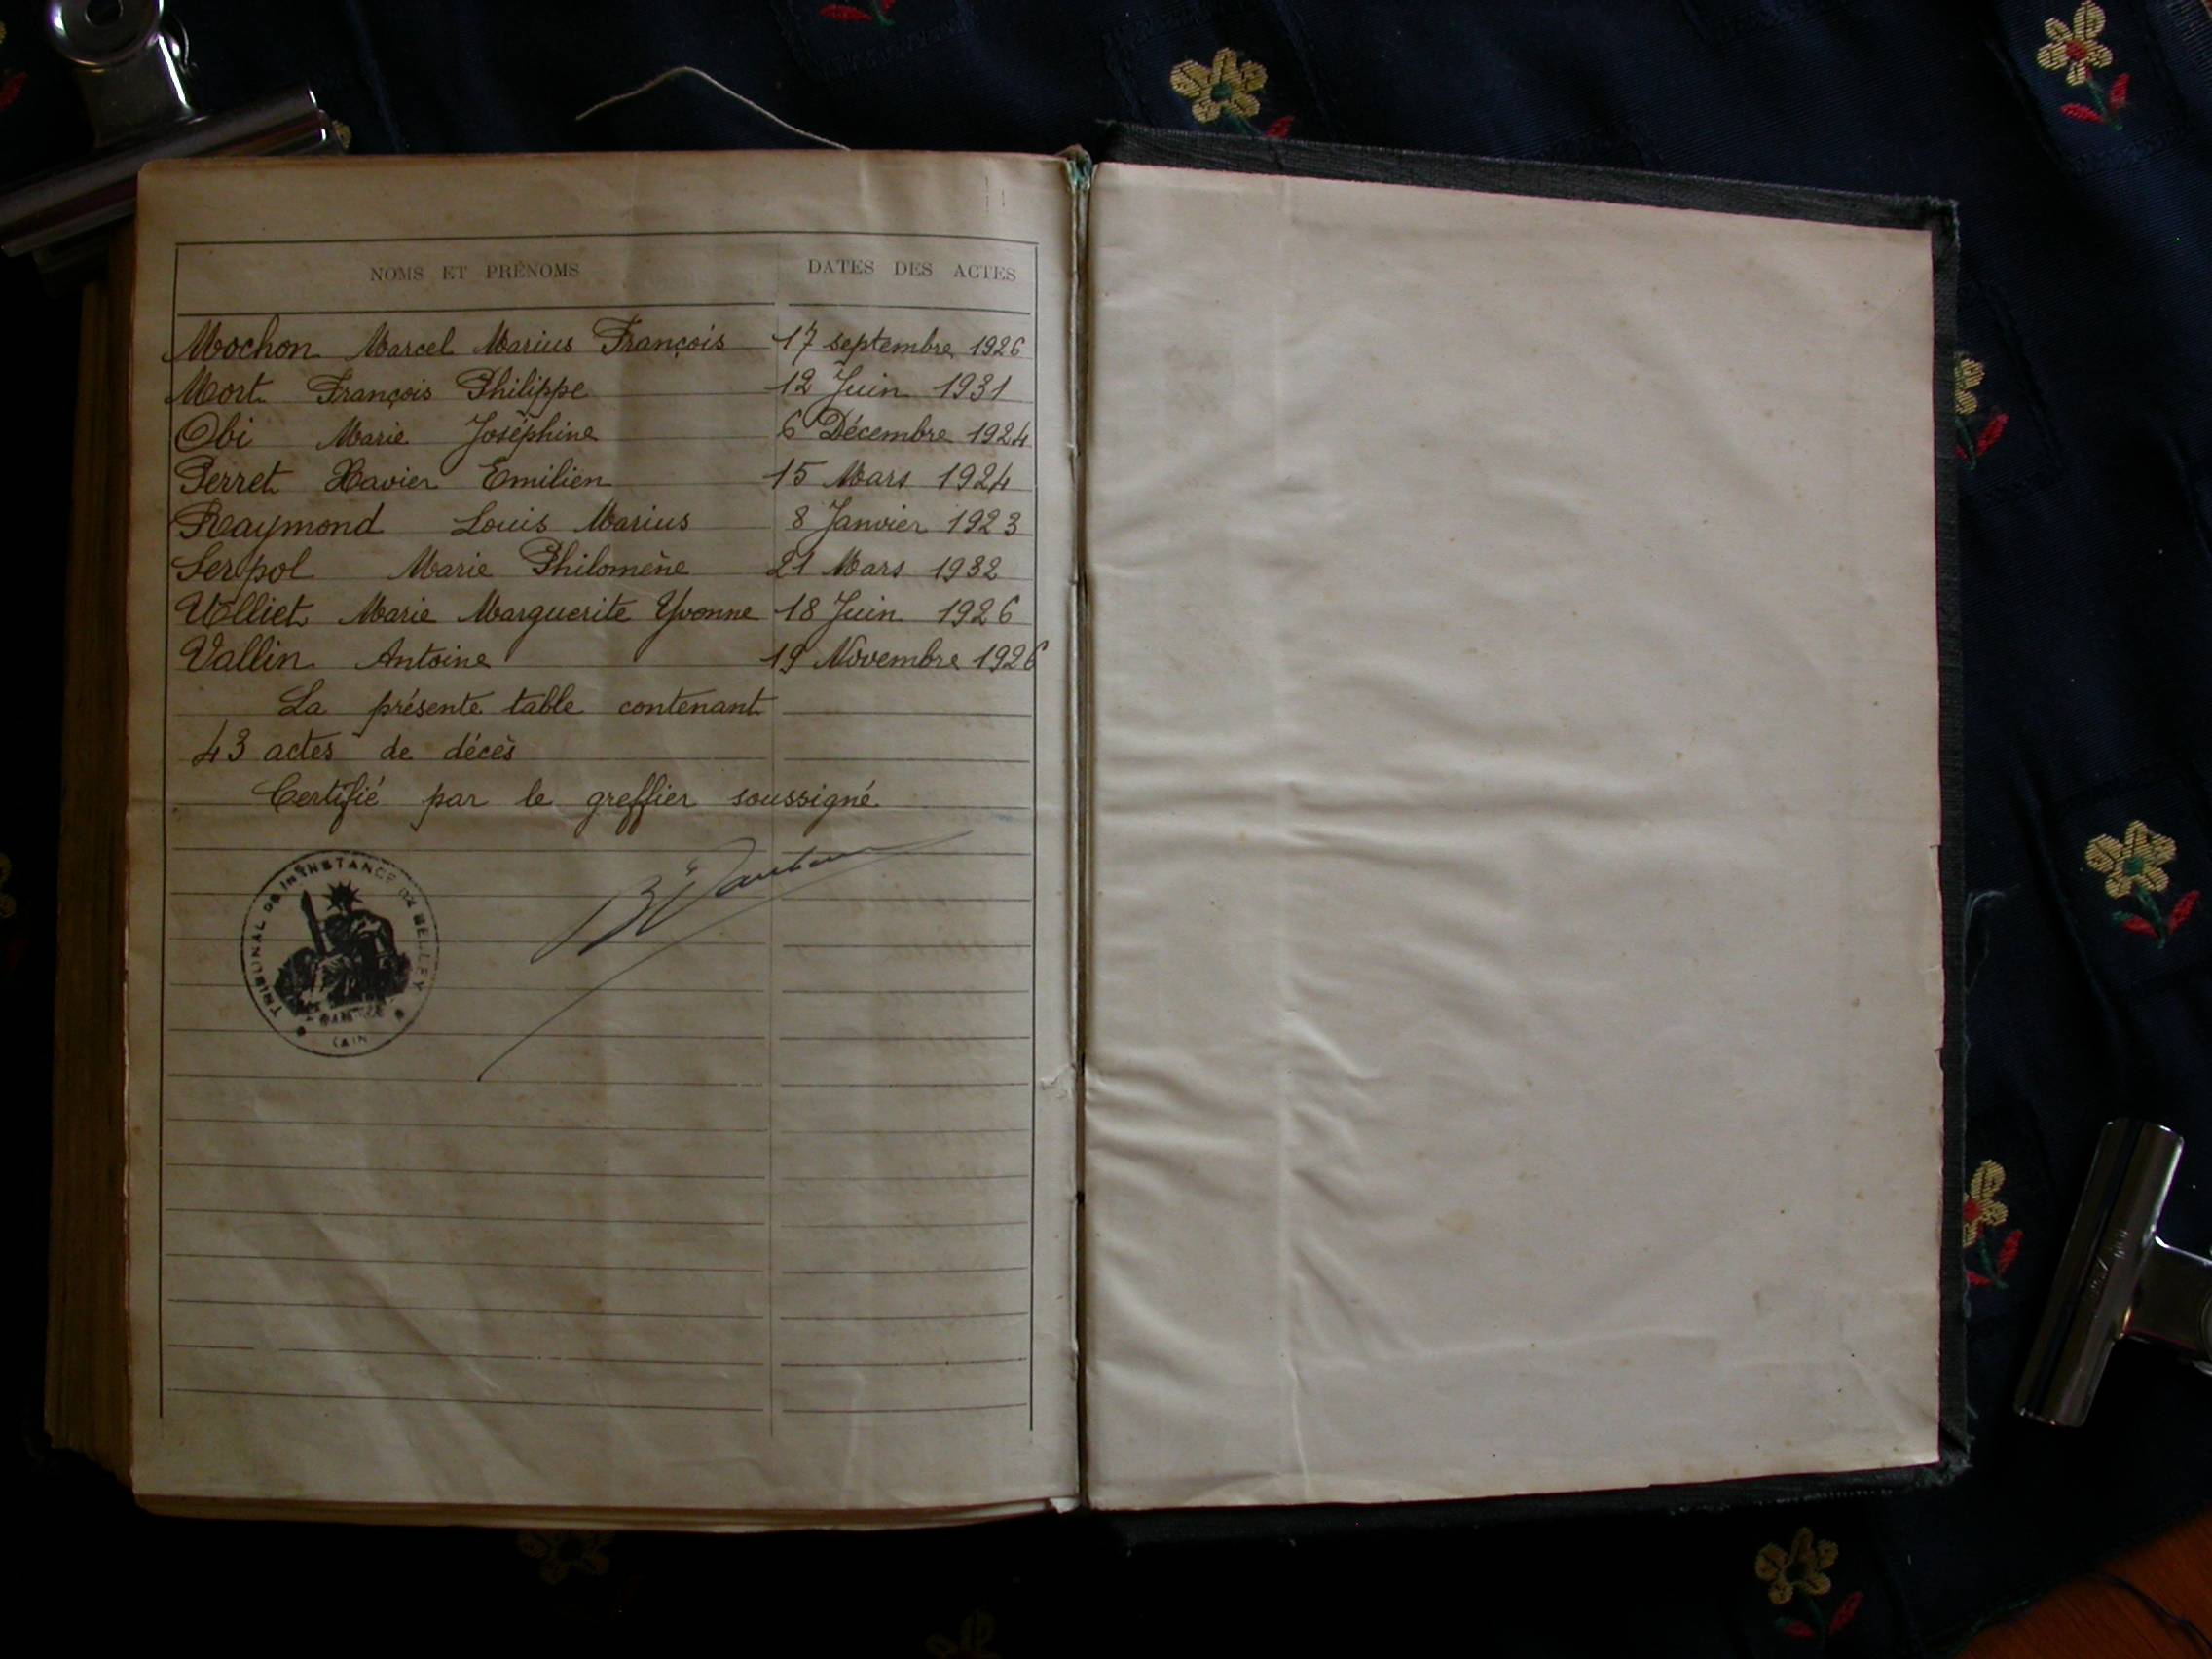 NOMS ET PRÉNOMS DATES DES ACTES
Mochon Marcel Marius François 17 septembre 1926
Mort François Philippe 12 Juin 1931
Obi Marie Joséphine 6 Décembre 1924
Perret Xavier Emilien 15 Mars 1924
Raymond Louis Marius 8 Janvier 1923
Serpol Marie Philomène 21 Mars 1932
Ulliet Marie Marguerite Yvonne 18 Juin 1926
Vallin Antoine 19 Novembre 1926
La présente table contenant
43 actes de décès
Certifié par le greffier soussigné
TRIBUNAL DE INSTANCE DE BELLEY
(AIN